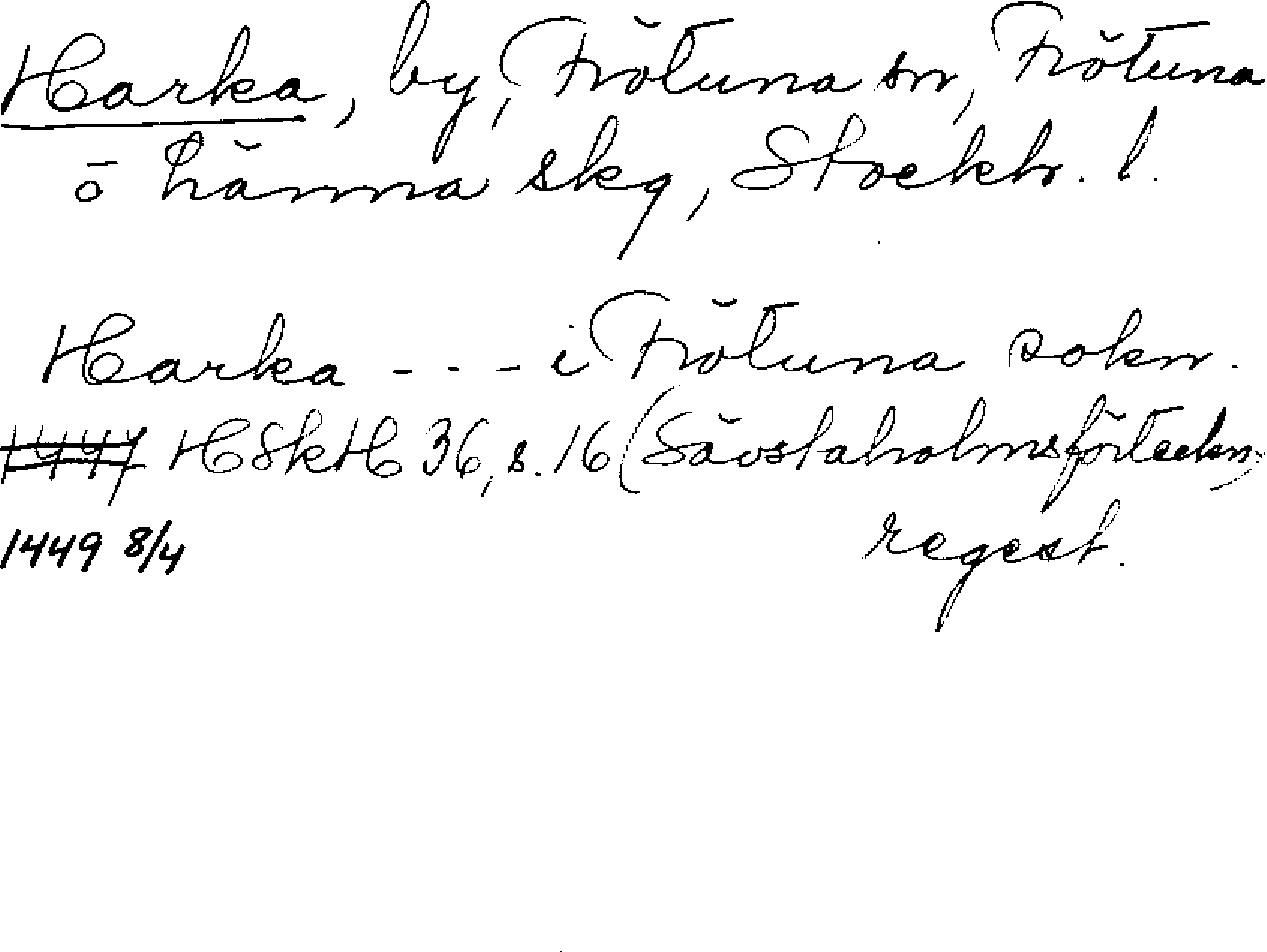 Harka, by, Frötuna sn, Frötuna
o Länna skg, Stockh. l.
Harka - - - i Frötuna sokn.
1447 HSkH 36, s. 16 (Sävstaholmsförteckn.)
1449 8/4 regest.